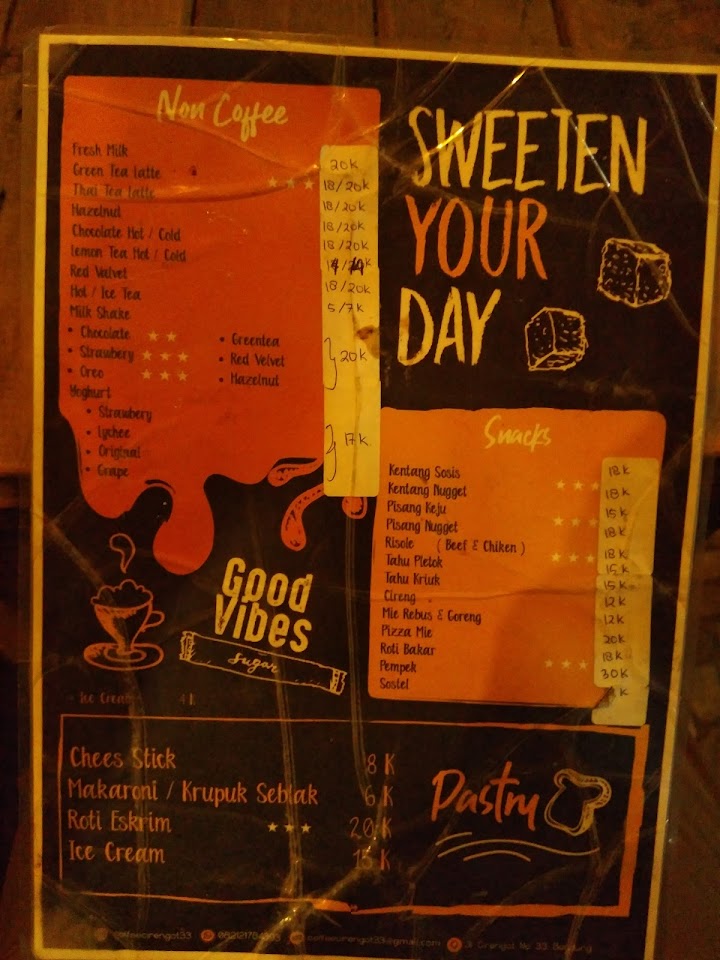 Non Coffee
Fresh Milk 20K
Green Tea Latte 18/20K
Thai Tea Latte 18/20K
Hazelnut 18/20K
Chocolate Hot / Cold 18/20K
Lemon Tea Hot / Cold
Red Valvet 18/20K
Hot / Ice Tea 5/7K
Milk Shake
• Chocolate • Greentea
• Strawbery • Red Velvet 20K
• Oreo • Hazelnut
Yoghurt
• Strawbery
• Lychee 17K
• Original
• Grape
SWEETEN
YOUR
DAY
Snacks
Kentang Sosis 18K
Kentang Nugget 18K
Pisang Keju 15K
Pisang Nugget 18K
Risole ( Beef & Chiken ) 18K
Tahu Pletok 15K
Tahu Kriuk 15K
Cireng 12K
Mie Rebus & Goreng 12K
Pizza Mie 20K
Roti Bakar 18K
Pempek 30K
Sostel K
Good
Vibes
sugar
Ice Cream 4 K
Chees Stick 8 K
Makaroni / Krupuk Seblak 6 K
Roti Eskrim 20 K
Ice Cream 15 K
Pastry
Jl. Cirengot No 33 Bandung